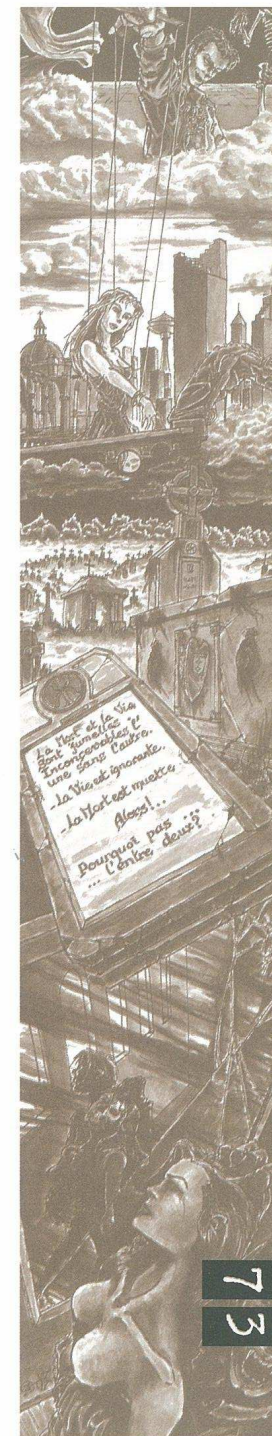 La Mort et la Vie
Sont jumelles
Inconcevables "l'
une sans l'autre.
-La Vie est ignorante.
-La Mort est muette.
Alors!...
Pourquoi pas ...
... l'entre deux?
73